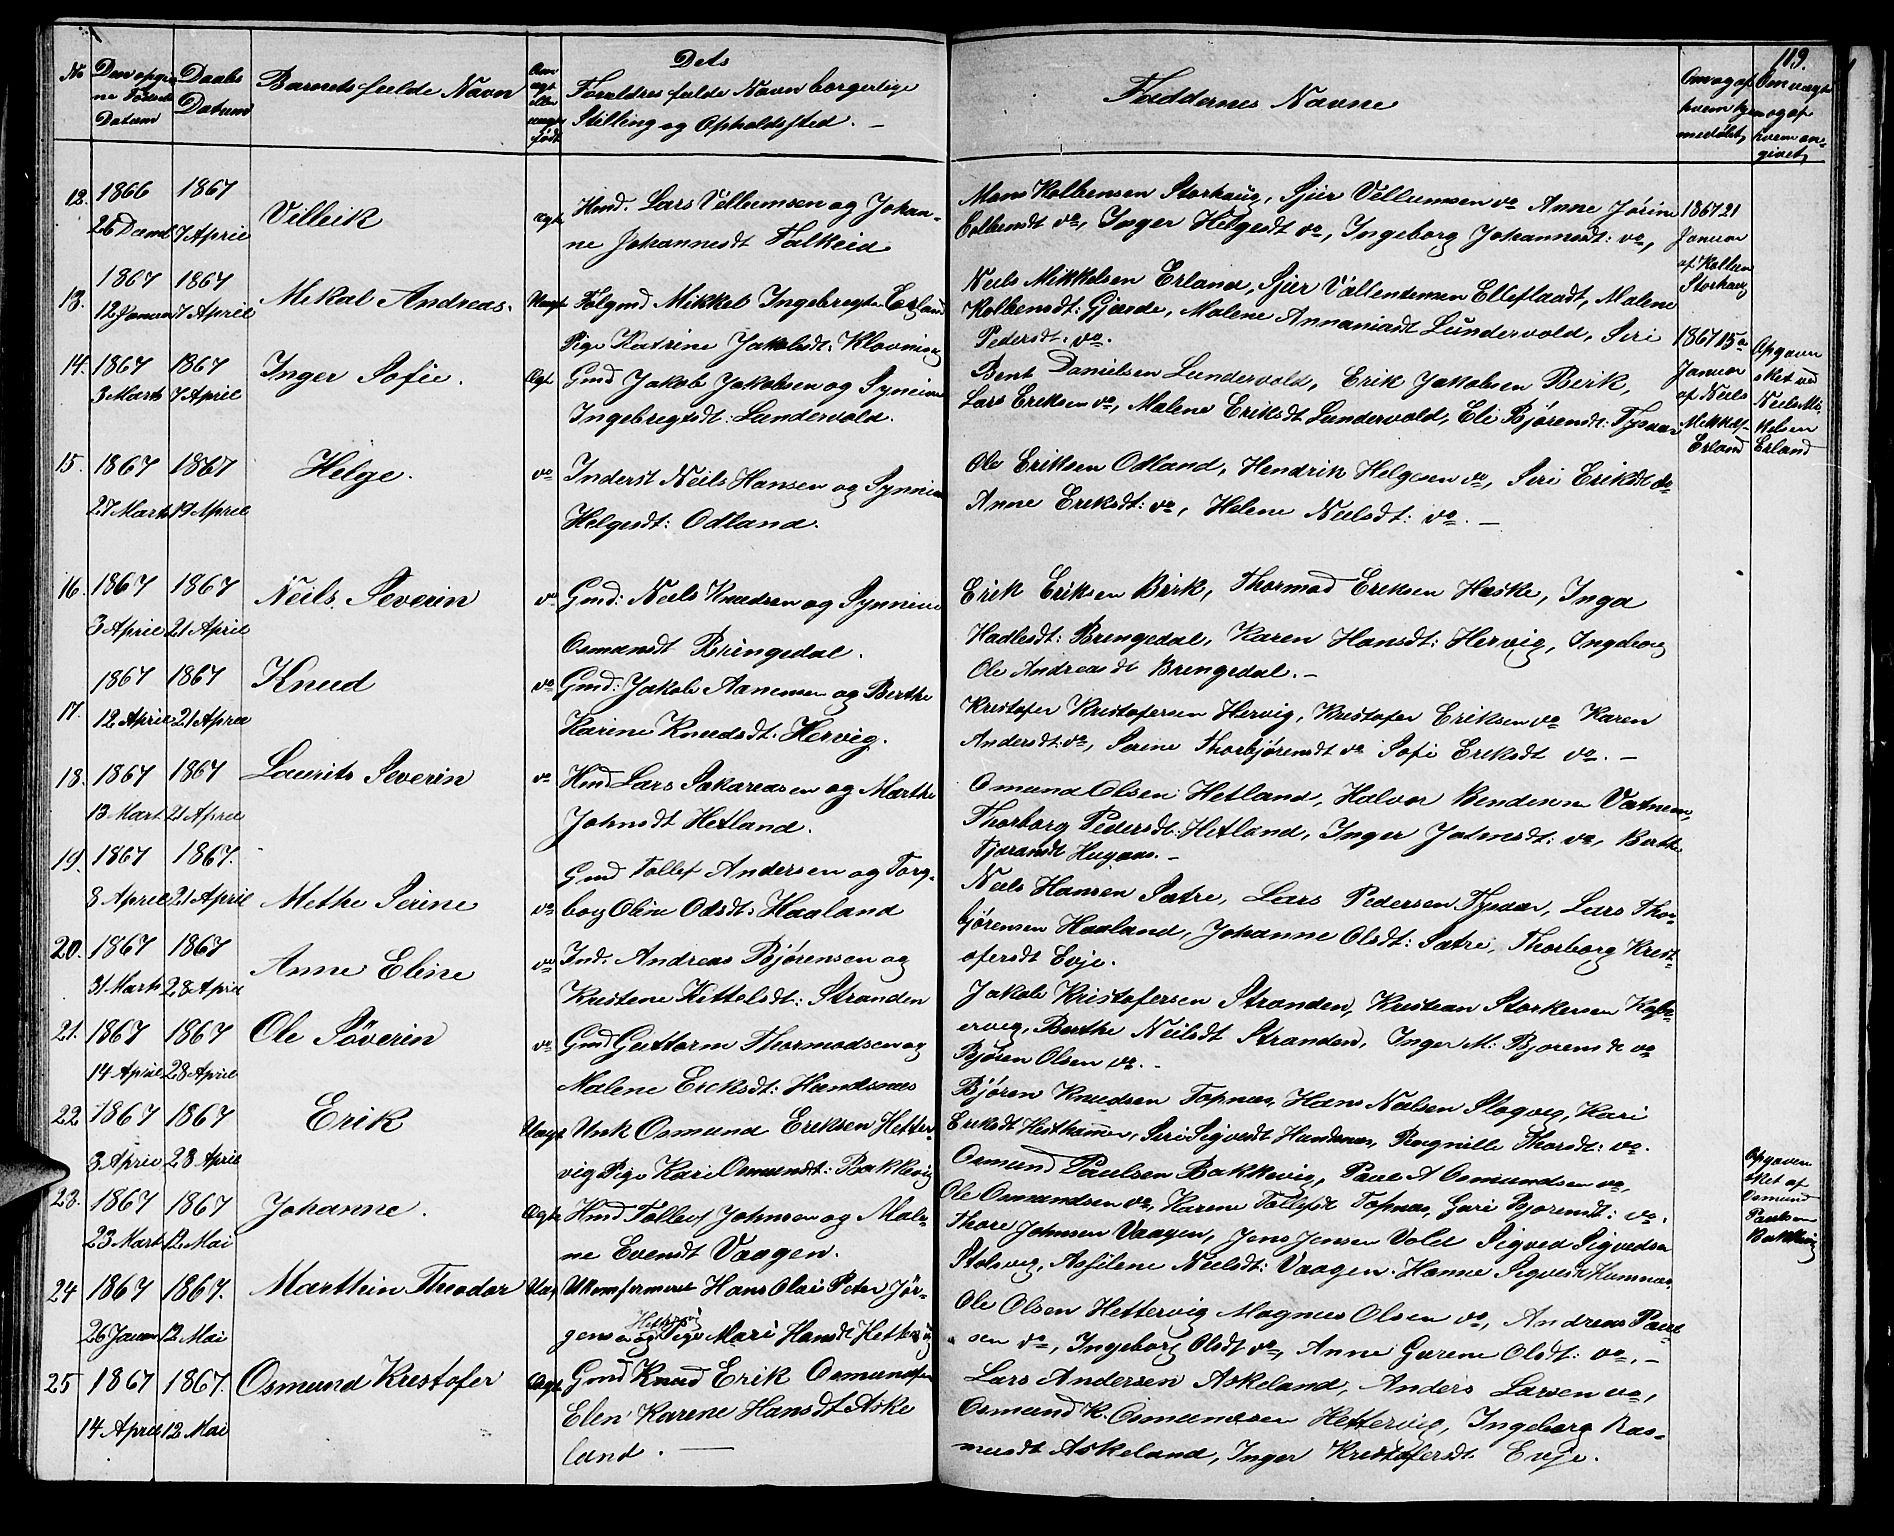 119.
No
Den opgivne Fødsels Datum
Daabs Datum
Barnets fulde Navn
Om ægte eller uægte født
Dets
Forældres fulde Navn borgerlige
Stilling og Opholdssted. —
Faddernes Navne
Om og af hvem hjemmedøbt
Om uægte og af hvem angivet
12. 1866 1867
26 Decmb 7 April
Villeik
Ægte
Hmd. Lars Villumsen og Johan-
ne Johannesdt Falkeid
Mons Kolbensen Storhaug, Sjur Villumsen do Anne Jørine
Colbensdt do, Inger Helgesdt do, Ingeborg Johannesdt: do,
1867 21 Januar af Kolben Storhaug
13. 1867 1867
12 Januar 7 April
Mikal Andreas.
Uægt
Følgmd Mikkel Ingebregts Erland
Pige Katrine Jakobsdt: Klovning
Neils Mikkelsen Erland, Sjur Vallentinsen Elleflaadt, Malene
Kolbensdt: Gjærde, Malene Annaniasdt Lundervold, Siri
Pedersdt. do.
1867 15de Januar af Neils Mikkels- Erland
Opgaven sket ved Neils Mikkelsen Erland
14. 1867 1867
3 Marts 7 April
Inger Sofie.
Ægt
Gmd Jakob Jakobsen og Synnive
Ingebregtsdt: Lundervold.
Bent Danielsen Lundervold, Erik Jakobsen Birk,
Lars Eriksen do, Malene Eriksdt Lundervold, Eli Bjørensdt: Tysvær
15. 1867 1867
27 Marts 19 April
Helge.
do
Inderst Neils Hansen og Synnive
Helgesdt: Odland.
Ole Eriksen Odland, Hendrik Helgesen do, Siri Eriksdt do
Anne Eriksdt: do, Helene Neilsdt: do. —
16. 1867 1867
3 April 21 April
Neils Severin
do
Gmd: Neils Knudsen og Synnive
Osmundsdt Bringedal.
Erik Eriksen Birk, Thormod Eriksen Haske, Inga
Hadlesdt: Bringedal, Karen Hansdt: Hervig, Ingeborg
Ole Andreasdt Bringedal. —
17. 1867 1867
12 April 21 April
Knud
do
Gmd: Jakob Aanensen og Berthe
Karine Knudsdt. Hervig.
Kristofer Kristofersen Hervig, Kristofer Eriksen do Karen
Andersdt: do, Serine Thorbjørensdt do Sofi Eriksdt do. —
18. 1867 1867
13 Mart 21 April
Laurits Severin
do
Hmd Lars Sakareasen og Marthe
Johnsdt Hetland.
Osmund Olsen Hetland, Halvor Bendixen Vatnem,
Thorborg Pedersdt: Hetland, Inger Johnsdt: do, Berthe
Tjerandsdt Hegaas. —
19. 1867 1867.
3 April 21 April
Methe Serine
do
Gmd Tollef Andersen og Torg-
borg Oline Odsdt: Haaland
Neils Hansen Sætre, Lars Pedersen Tysvær, Lars Thor-
bjørensen Haaland, Johanne Olsdt: Sætre, Thorborg Krist-
ofersdt Evje.
20. 1867 1867
31 Marts 28 April
Anne Eline
do
Ind. Andreas Bjørensen og
Kristene Kittelsdt: Stranden
Jakob Kristofersen Stranden, Kristian Storkersen Kobb-
ervig, Berthe Neilsdt Stranden, Inger M: Bjorensdt do
Bjøren Olsen do. —
21. 1867 1867
14 April 28 April
Ole Søverin
do
Gmd Guttorm Thormodsen og
Malene Eriksdt: Handsnæs
Bjøren Knudsen Topnæs, Hans Nielsen Slogvig, Kari
Eriksdt Hesthammer, Siri Sigvesdt Handsnæs, Ragnille Thorsdt: do.
22 1867 1867
3 April 28 April
Erik
Uægt
Unk Osmund Eriksen Hetter-
vig Pige Kari Osmundsdt: Bakkevig
Osmund Paulsen Bakkevig, Paul A Osmundsen do,
Ole Osmundsen do, Karen Tollefsdt Topnæs, Guri Bjorensdt: do.
Opgaven sket af Osmund Paulsen Bakkevig
23. 1867 1867
23 Mart 12 Mai
Johanne.
Ægte
Hmd Tollef Johnsen og Male-
ne Evendt Vaagen.
Thore Johnsen Vaagen, Jens Jensen Vold Sigved Sigvedsen
Stolsvig, Asseline Neilsdt: Vaagen. Hanne Sigvesdt Hamnæs,
24 1867 1867.
26 Januar 12 Mai
Marthin Theodor
Uæg
Ukonfirmeret Hans Olai Peter Jør-
gensen Hettervig og Pige Mari Hansdt Hettervig
Ole Olsen Hettervig Magnus Olsen do, Andreas Paul-
sen do, Ingeborg Olsdt do, Anne Gurine Olsdt: do. —
25 1867 1867.
14 April 12 Mai
Osmund Kristofer
Ægte
Gmd Knud Erik Osmundsen
Elen Karene Hansdt Aske
land. —
Lars Andersen Askeland, Anders Larsen do,
Osmund K. Osmundsen Hettervig, Ingeborg Ras-
musdt Askeland, Inger Kristofersdt Evje.